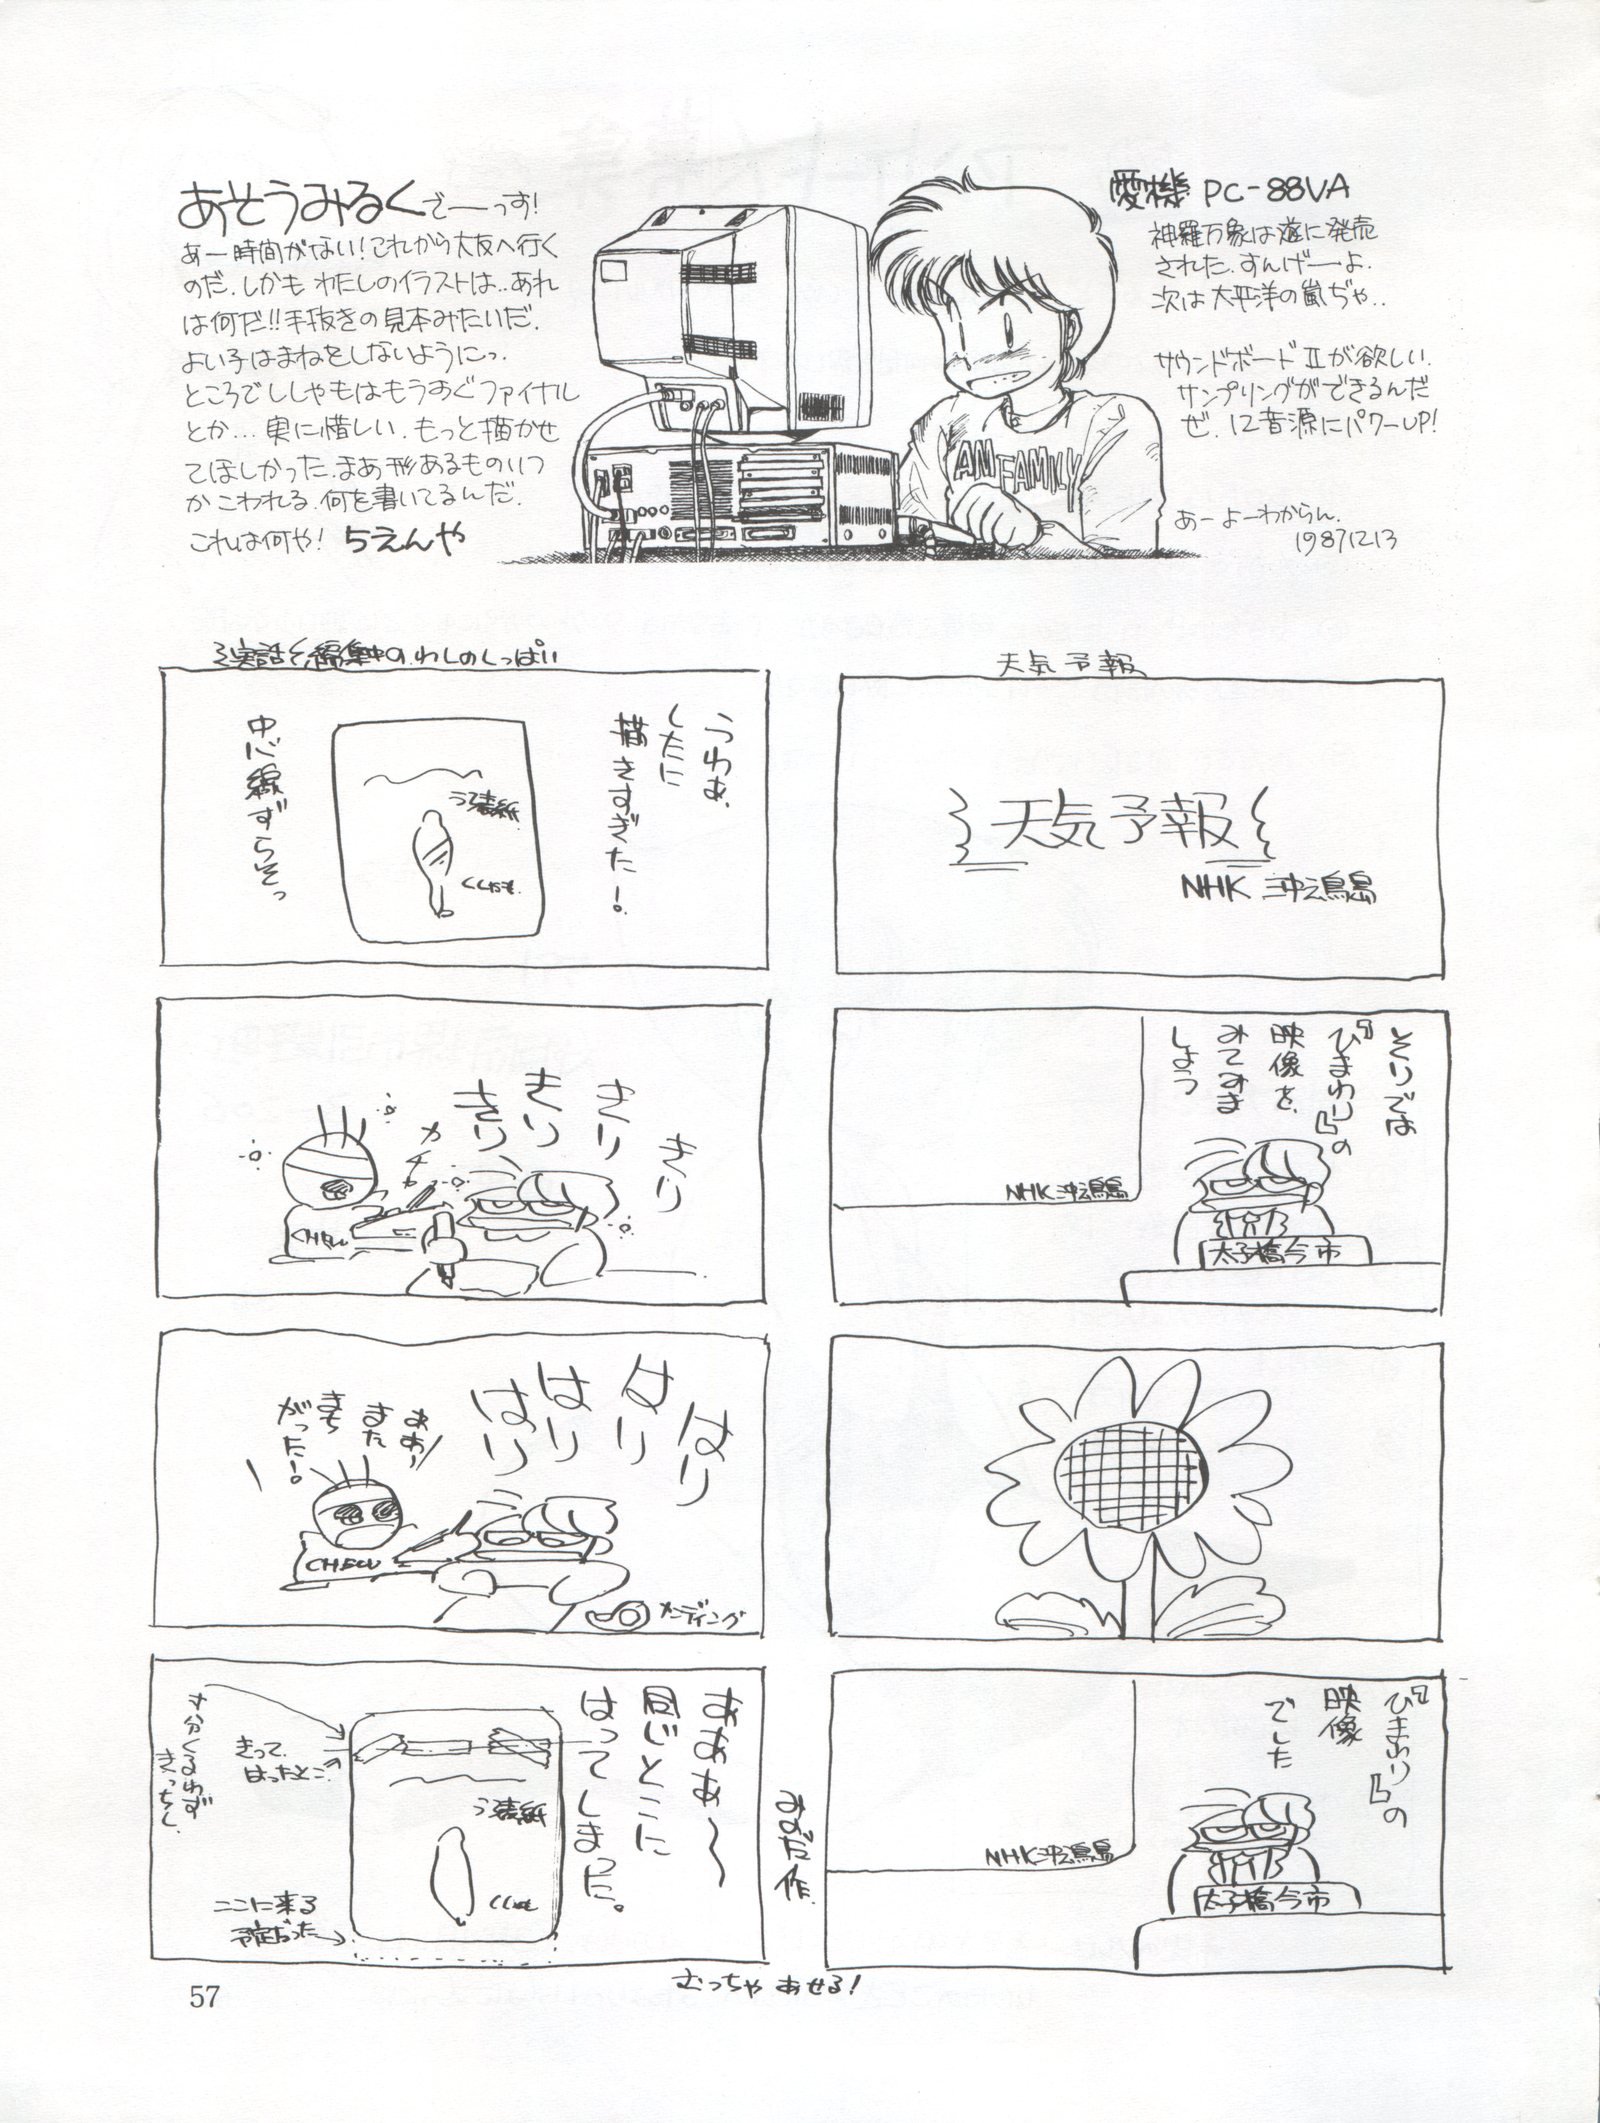 あそうみるくでーーっす!
あー時間がない!これから大友へ行く
のだ.しかも わたしのイラストは..あれ
は何だ!!手抜きの見本みたいだ.
よい子はまねをしないようにっ.
ところでししゃもはもうすぐファイナル
とか…実に惜しい.もっと描かせ
てほしかった.まあ形あるものいつ
かこわれる.何を書いてるんだ.
これは何や! ちえんや
愛機 PC-88VA
神羅万象は遂に発売
された.すんげーーよ.
次は太平洋の嵐ぢゃ..
サウンドボードⅡが欲しい.
サンプリングができるんだ
ぜ.12音源にパワーUP!
あーよーわからん.
19871213
AM FAMILY
天気予報
天気予報
NHK 沖ノ鳥島
それでは
『ひまわり』の
映像を、
みてみま
しょう
NHK沖ノ鳥島
太子橋今市
『ひまわり』の
映像
でした
NHK沖ノ鳥島
太子橋今市
実話 編集中の.わしのしっぱい
うわぁ、
したに
描きすぎた!
うら表紙
ししゃも
中心線ずらそっ
きり
きり
きり
きり
カチャ
はり
はり
はり
はり
ああ〜
また
まち
がった!
メンディング
あああ〜
同じとこに
はってしまった。
うら表紙
ししゃも
寸分くるわず
きっちし
きって
はったとこ
ここに来る
予定だった→
おおだ作
むっちゃ あせる!
57